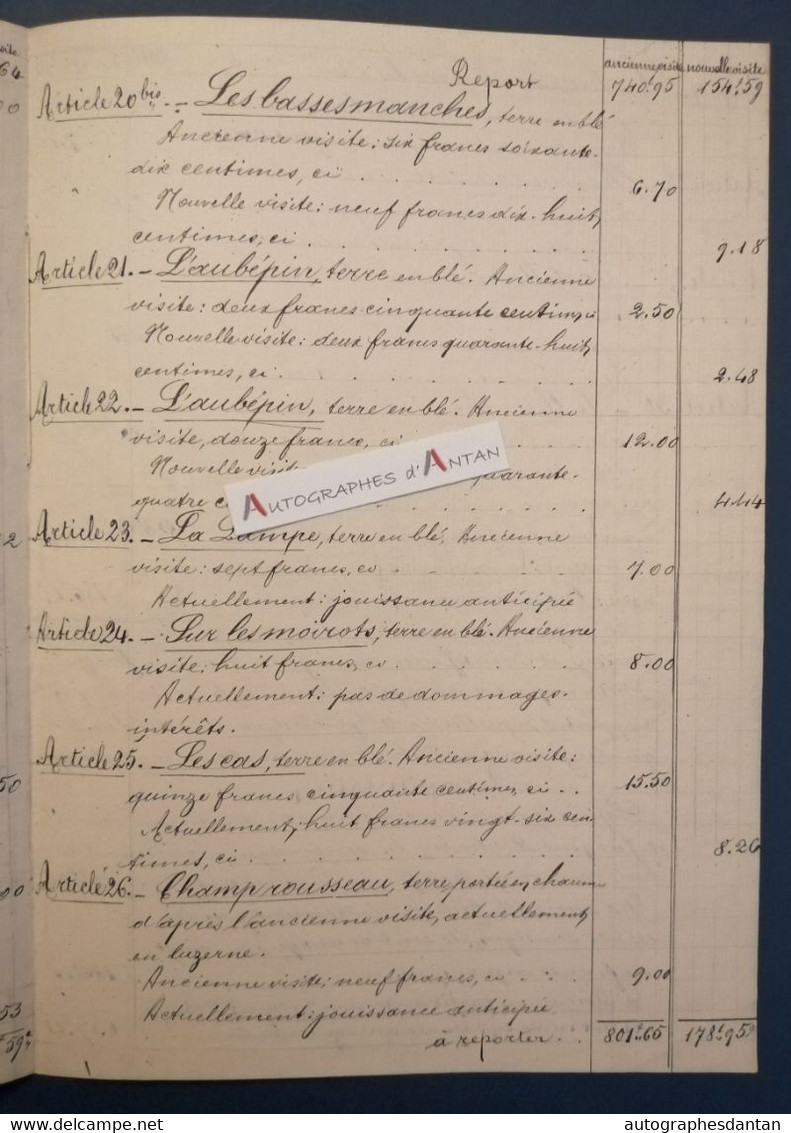 ancienne visite nouvelle visite
Report 740f.95 154f.59
Article 20 bis. – Les basses manches, terre en blé
Ancienne visite : six francs soixante-
dix centimes, ci . . . . . . . 6.70
Nouvelle visite : neuf francs dix-huit
centimes, ci . . . . . . . . 9.18
Article 21. – L'aubépin, terre en blé. Ancienne
visite : deux francs cinquante centimes, ci 2.50
Nouvelle visite : deux francs quarante-huit
centimes, ci . . . . . . . . 2.48
Article 22. – L'aubépin, terre en blé. Ancienne
visite, douze francs, ci . . . . 12.00
Nouvelle visite quarante-
quatre c . . . . . . 4.44
Article 23. – La Lampe, terre en blé. Ancienne
visite : sept francs, ci . . . . . 7.00
Actuellement : jouissance anticipée
Article 24. – Sur les moirots, terre en blé. Ancienne
visite : huit francs, ci . . . . . 8.00
Actuellement : pas de dommages-
intérêts.
Article 25. – Les cas, terre en blé. Ancienne visite :
quinze francs cinquante centimes, ci . . 15.50
Actuellement, huit francs vingt-six cen
times, ci . . . . . . . . . . 8.26
Article 26. – Champ rousseau, terre portée en chaume
d'après l'ancienne visite, actuellement
en luzerne.
Ancienne visite, neuf francs, ci . . . 9.00
Actuellement : jouissance anticipée
à reporter . . 801f.65 178f.95
AUTOGRAPHES d'ANTAN
autographesdantan